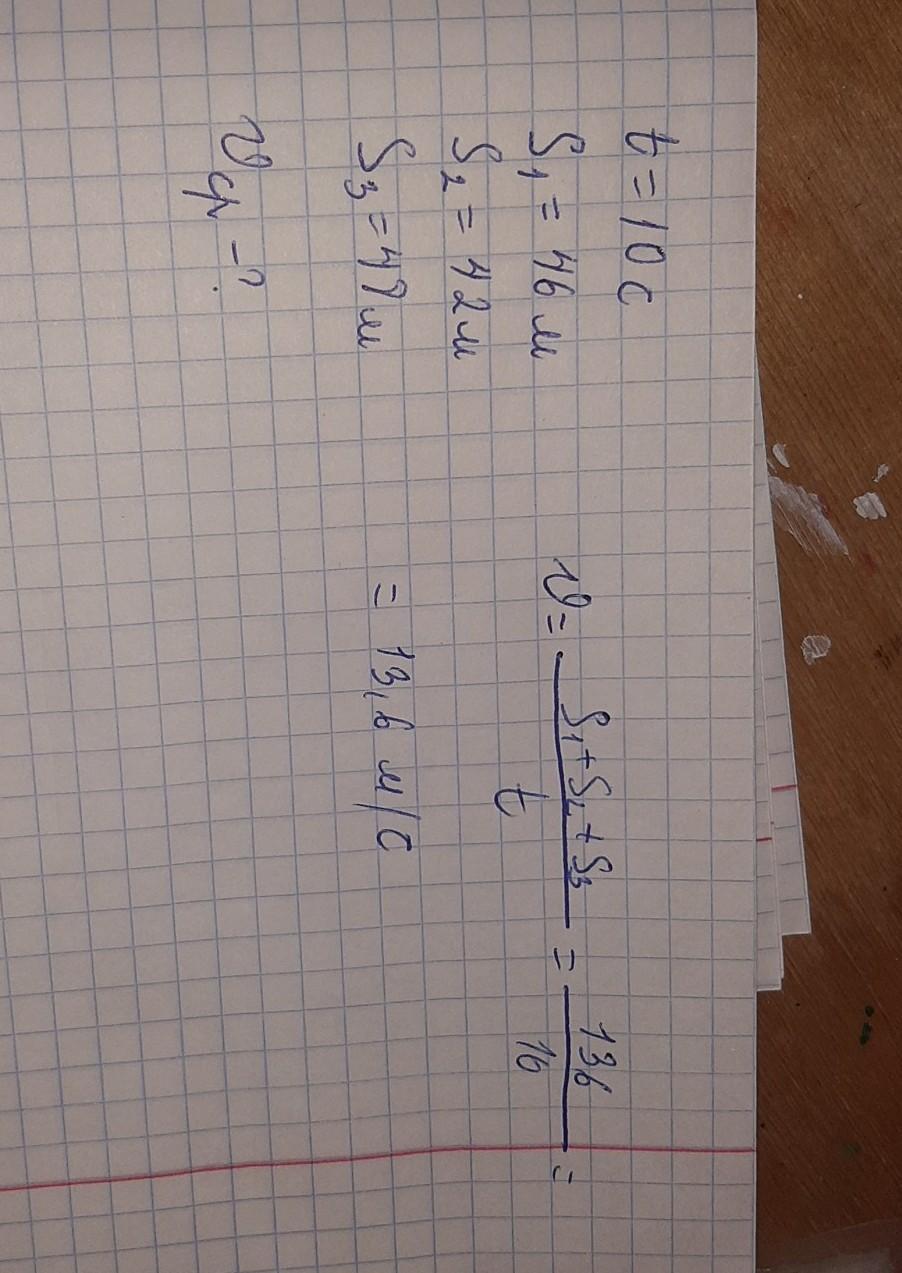 t = 10 с
S₁ = 46 м
S₂ = 42 м
S₃ = 48 м
υср - ?
υ = (S₁ + S₂ + S₃) / t = 136 / 10 =
= 13,6 м/с